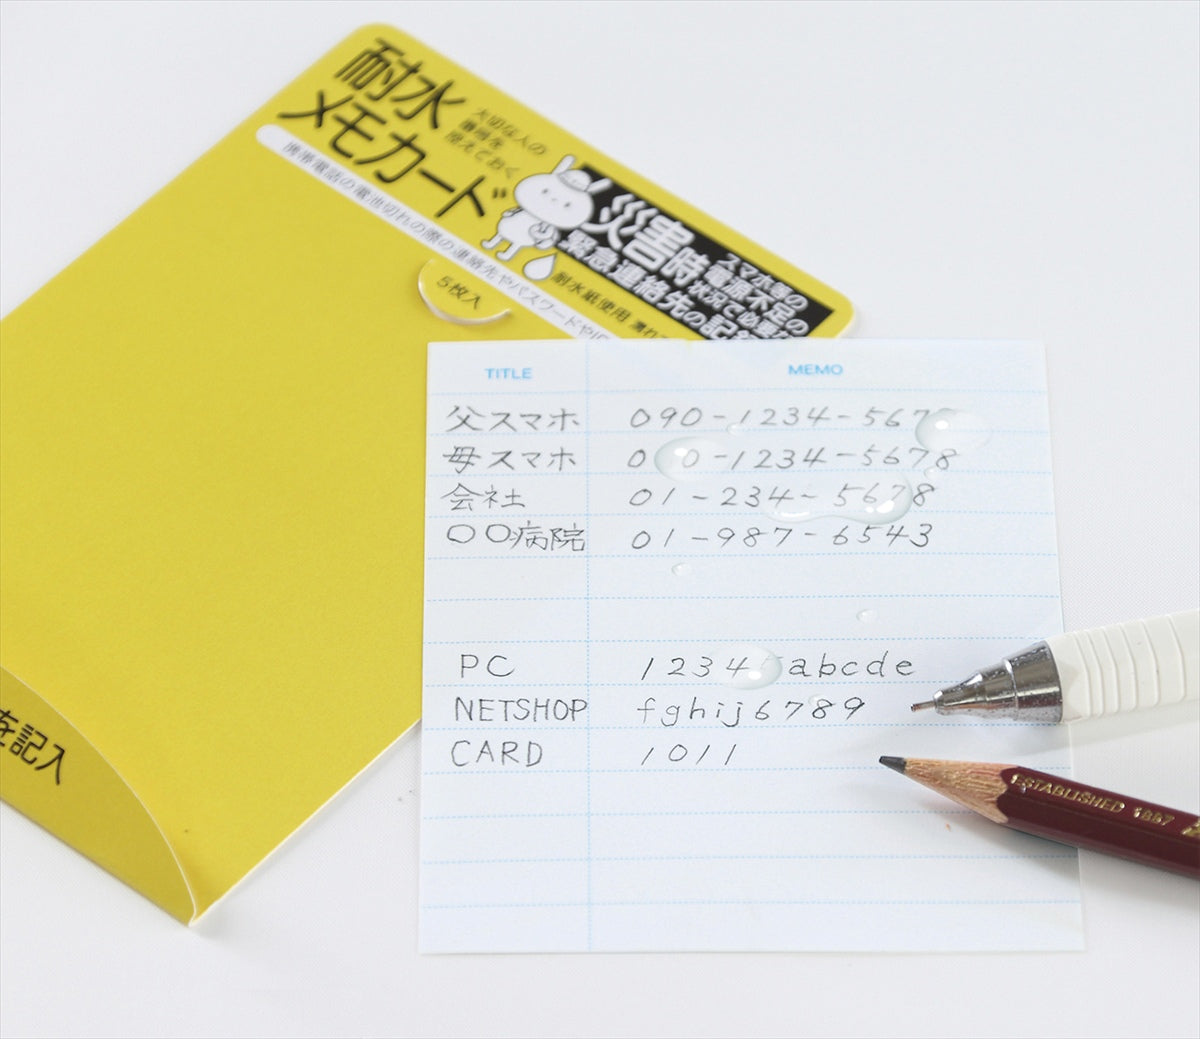 耐水
メモカード
大切な人の
番号を
控えておく
災害時
スマホ等の
電源不足の
状況で必要な
緊急連絡先の記
耐水紙使用 濡れ
携帯電話の電池切れの際の連絡先やパスワードやID
5枚入
を記入
TITLE MEMO
父スマホ 090-1234-567
母スマホ 0 0-1234-5678
会社 01-234-5678
〇〇病院 01-987-6543
PC 1234 abcde
NETSHOP fghij6789
CARD 1011
ESTABLISHED 1887